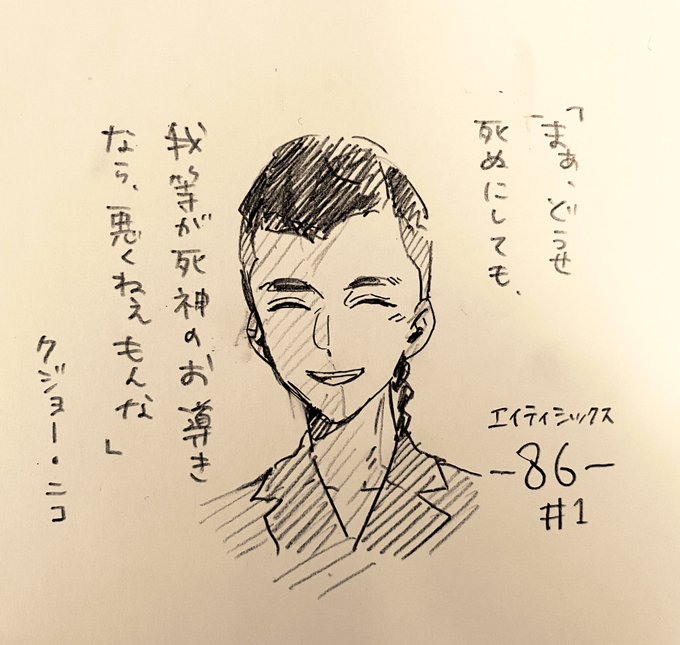 「まあ、どうせ
死ぬにしても、
我等が死神のお導き
なら、悪くねえもんな」
クジョー・ニコ
エイティシックス
-86-
#1